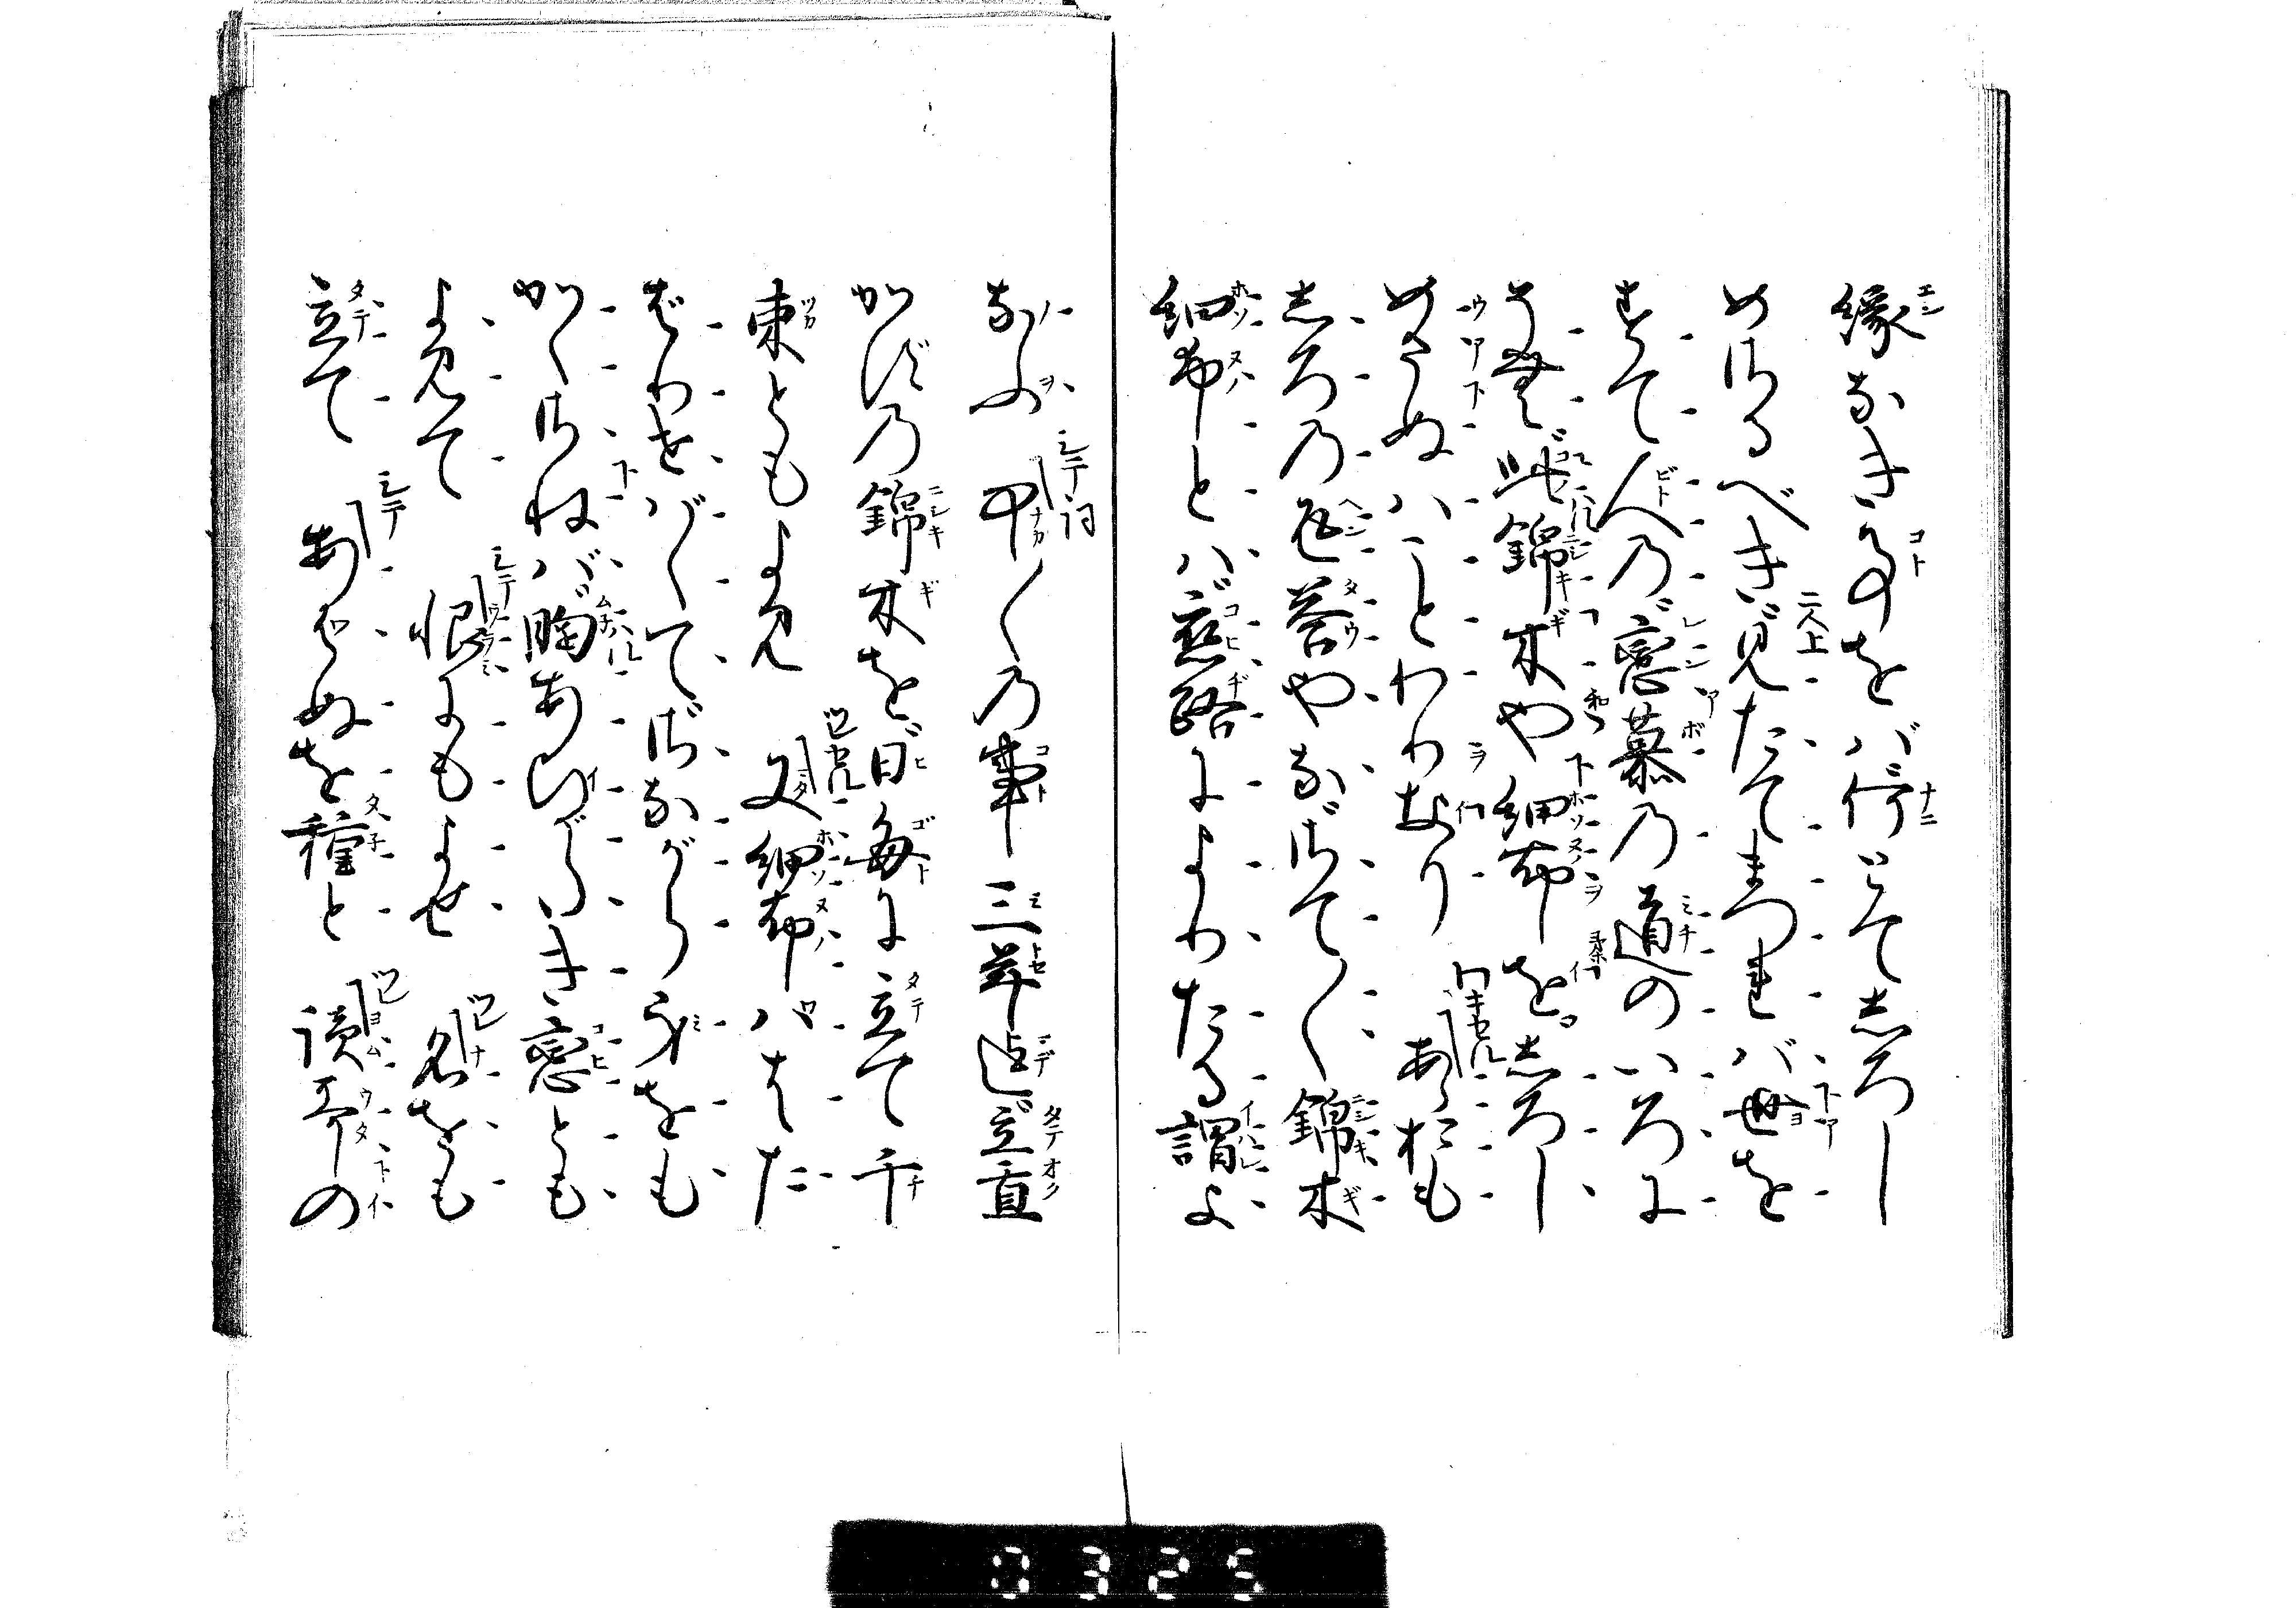 縁なき事をバ何とてしろし
めさるべき見たてまつれバ世を
すて人の恋慕の道のいろに
そむ此錦木や細布をしろし
めさぬハことわりなり あらおも
しろの返答やなさて〱錦木
細布とハ恋路によりたる謂よ
なふ 中〱の事三年迄立置
かずの錦木を日毎に立て千
束ともよみ 又細布ハはた
ばりせばくてさながら身をも
かくさねバ胸あひがたき恋とも
よみて 恨にもよせ 名をも
立て あはぬを種と 読哥の
0325